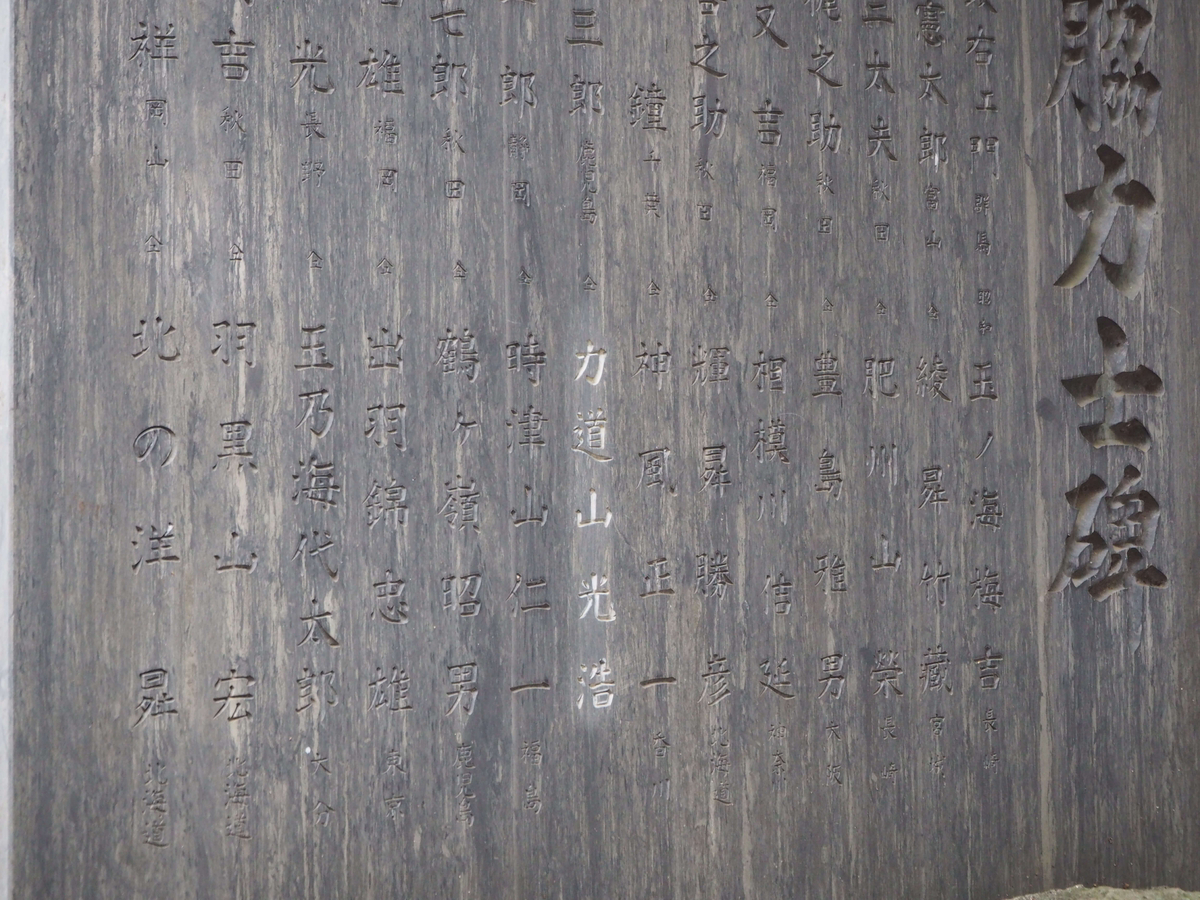 脇力士碑
右エ門 群馬 昭和 玉ノ海梅吉 長崎
憲太郎 富山 仝 綾昇竹蔵 宮城
二太夫 秋田 仝 肥州山榮 長崎
之助 秋田 仝 豊島雅男 大阪
又吉 福岡 仝 相模川佶延 神奈
之助 秋田 仝 輝昇勝彦 北海道
鐘 千葉 仝 神風正一 香川
三郎 鹿児島 仝 力道山光浩
郎 静岡 仝 時津山仁一 福島
七郎 秋田 仝 鶴ヶ嶺昭男 鹿児島
雄 福岡 仝 出羽錦忠雄 東京
光 長野 仝 玉乃海代太郎 大分
吉 秋田 仝 羽黒山宏 北海道
祥 岡山 仝 北の洋昇 北海道